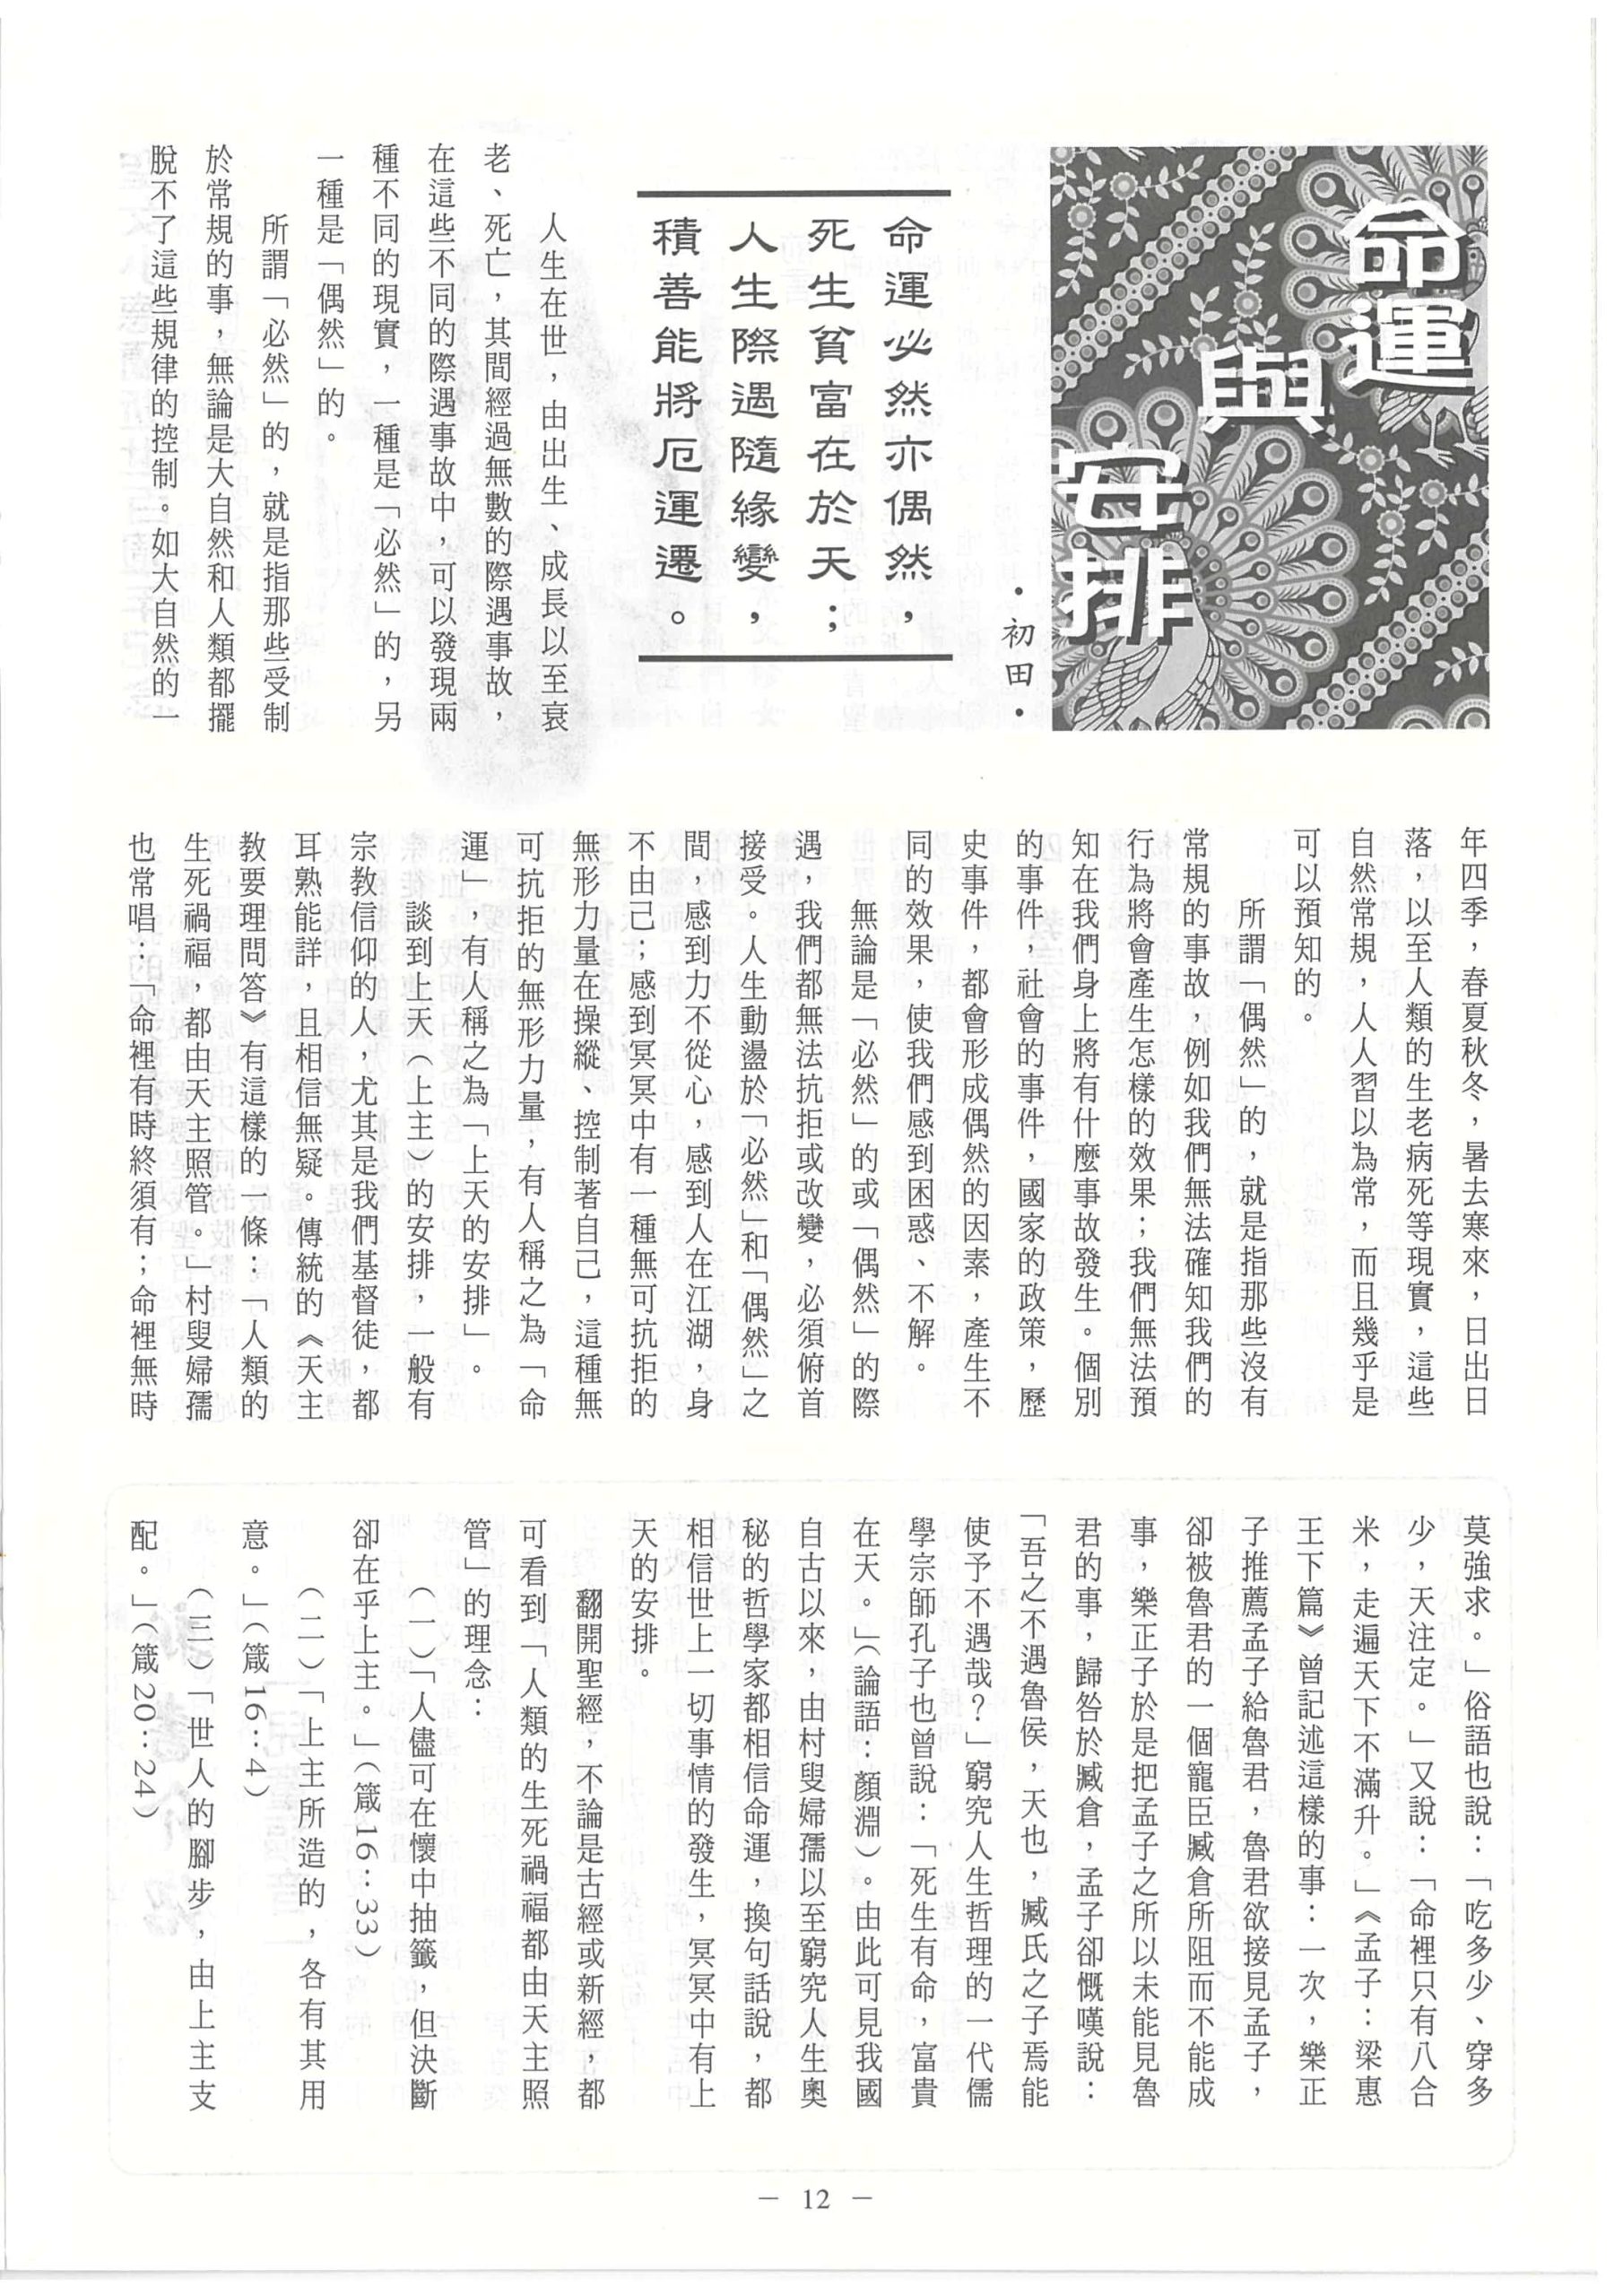 命運
與
安排
•初田•
命運必然亦偶然，
死生貧富在於天；
人生際遇隨緣變，
積善能將厄運遷。
人生在世，由出生、成長以至衰
老、死亡，其間經過無數的際遇事故，
在這些不同的際遇事故中，可以發現兩
種不同的現實，一種是「必然」的，另
一種是「偶然」的。
所謂「必然」的，就是指那些受制
於常規的事，無論是大自然和人類都擺
脫不了這些規律的控制。如大自然的一
年四季，春夏秋冬，暑去寒來，日出日
落，以至人類的生老病死等現實，這些
自然常規，人人習以為常，而且幾乎是
可以預知的。
所謂「偶然」的，就是指那些沒有
常規的事故，例如我們無法確知我們的
行為將會產生怎樣的效果；我們無法預
知在我們身上將有什麼事故發生。個別
的事件，社會的事件，國家的政策，歷
史事件，都會形成偶然的因素，產生不
同的效果，使我們感到困惑、不解。
無論是「必然」的或「偶然」的際
遇，我們都無法抗拒或改變，必須俯首
接受。人生動盪於「必然」和「偶然」之
間，感到力不從心，感到人在江湖，身
不由己；感到冥冥中有一種無可抗拒的
無形力量在操縱、控制著自己，這種無
可抗拒的無形力量，有人稱之為「命
運」，有人稱之為「上天的安排」。
談到上天（上主）的安排，一般有
宗教信仰的人，尤其是我們基督徒，都
耳熟能詳，且相信無疑。傳統的《天主
教要理問答》有這樣的一條：「人類的
生死禍福，都由天主照管。」村叟婦孺
也常唱：「命裡有時終須有；命裡無時
莫強求。」俗語也說：「吃多少、穿多
少，天注定。」又說：「命裡只有八合
米，走遍天下不滿升。」《孟子：梁惠
王下篇》曾記述這樣的事：一次，樂正
子推薦孟子給魯君，魯君欲接見孟子，
卻被魯君的一個寵臣臧倉所阻而不能成
事，樂正子於是把孟子之所以未能見魯
君的事，歸咎於臧倉，孟子卻慨嘆說：
「吾之不遇魯侯，天也，臧氏之子焉能
使予不遇哉？」窮究人生哲理的一代儒
學宗師孔子也曾說：「死生有命，富貴
在天。」（論語：顏淵）。由此可見我國
自古以來，由村叟婦孺以至窮究人生奧
秘的哲學家都相信命運，換句話說，都
相信世上一切事情的發生，冥冥中有上
天的安排。
翻開聖經，不論是古經或新經，都
可看到「人類的生死禍福都由天主照
管」的理念：
（一）「人儘可在懷中抽籤，但決斷
卻在乎上主。」（箴16：33）
（二）「上主所造的，各有其用
意。」（箴16：4）
（三）「世人的腳步，由上主支
配。」（箴20：24）
— 12 —